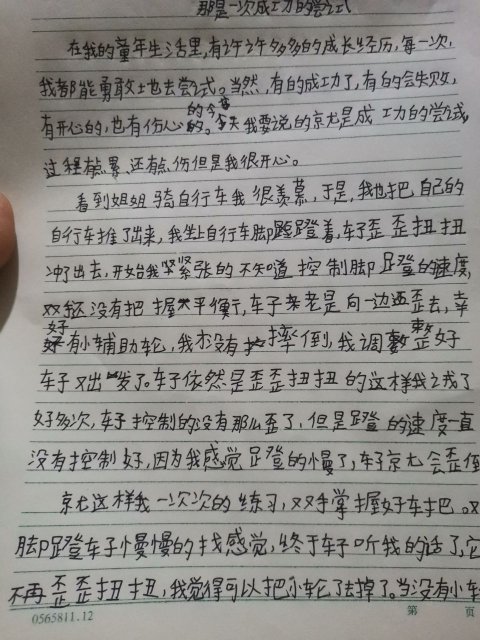 那是一次成功的尝试
在我的童年生活里,有许许多多的成长经历,每一次,
我都能勇敢土地去尝试。当然,有的成功了,有的会失败,
有开心的,也有伤心的。今天我要说的就是成功的尝试,
过程有点累,还有点伤但是我很开心。
看到姐姐骑自行车我很羡慕,于是,我也把自己的
自行车推了出来,我坐上自行车脚蹬着,车子歪歪扭扭
冲了出去,开始我紧紧张的不知道控制脚蹬的速度,
双没有把握平衡,车子老是向一边歪去,幸
好有小辅助轮,我才没有摔倒,我调整好
车子又出发了。车子依然是歪歪扭扭的这样我了
好多次,车子控制的没有那么歪了,但是蹬的速度一直
没有控制好,因为我感觉蹬的慢了,车子就会歪倒
就这样我一次次的练习,双手掌握好车把。双
脚蹬车子慢慢的找感觉,终于车子听我的话了,它
不再歪歪扭扭,我觉得可以把小轮子去掉了。当没有小车
0565811.12
第 页